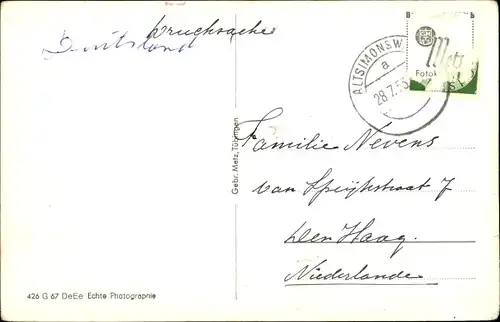 Drucksache
Deutsland
B B
Metz
Fotok
ALTSIMONSW
a
28.7.55
Familie Nevens
van Speijkstraat 7
Den Haag.
Niederlande
Gebr. Metz, Tübingen
426 G 67 DeEe Echte Photographie